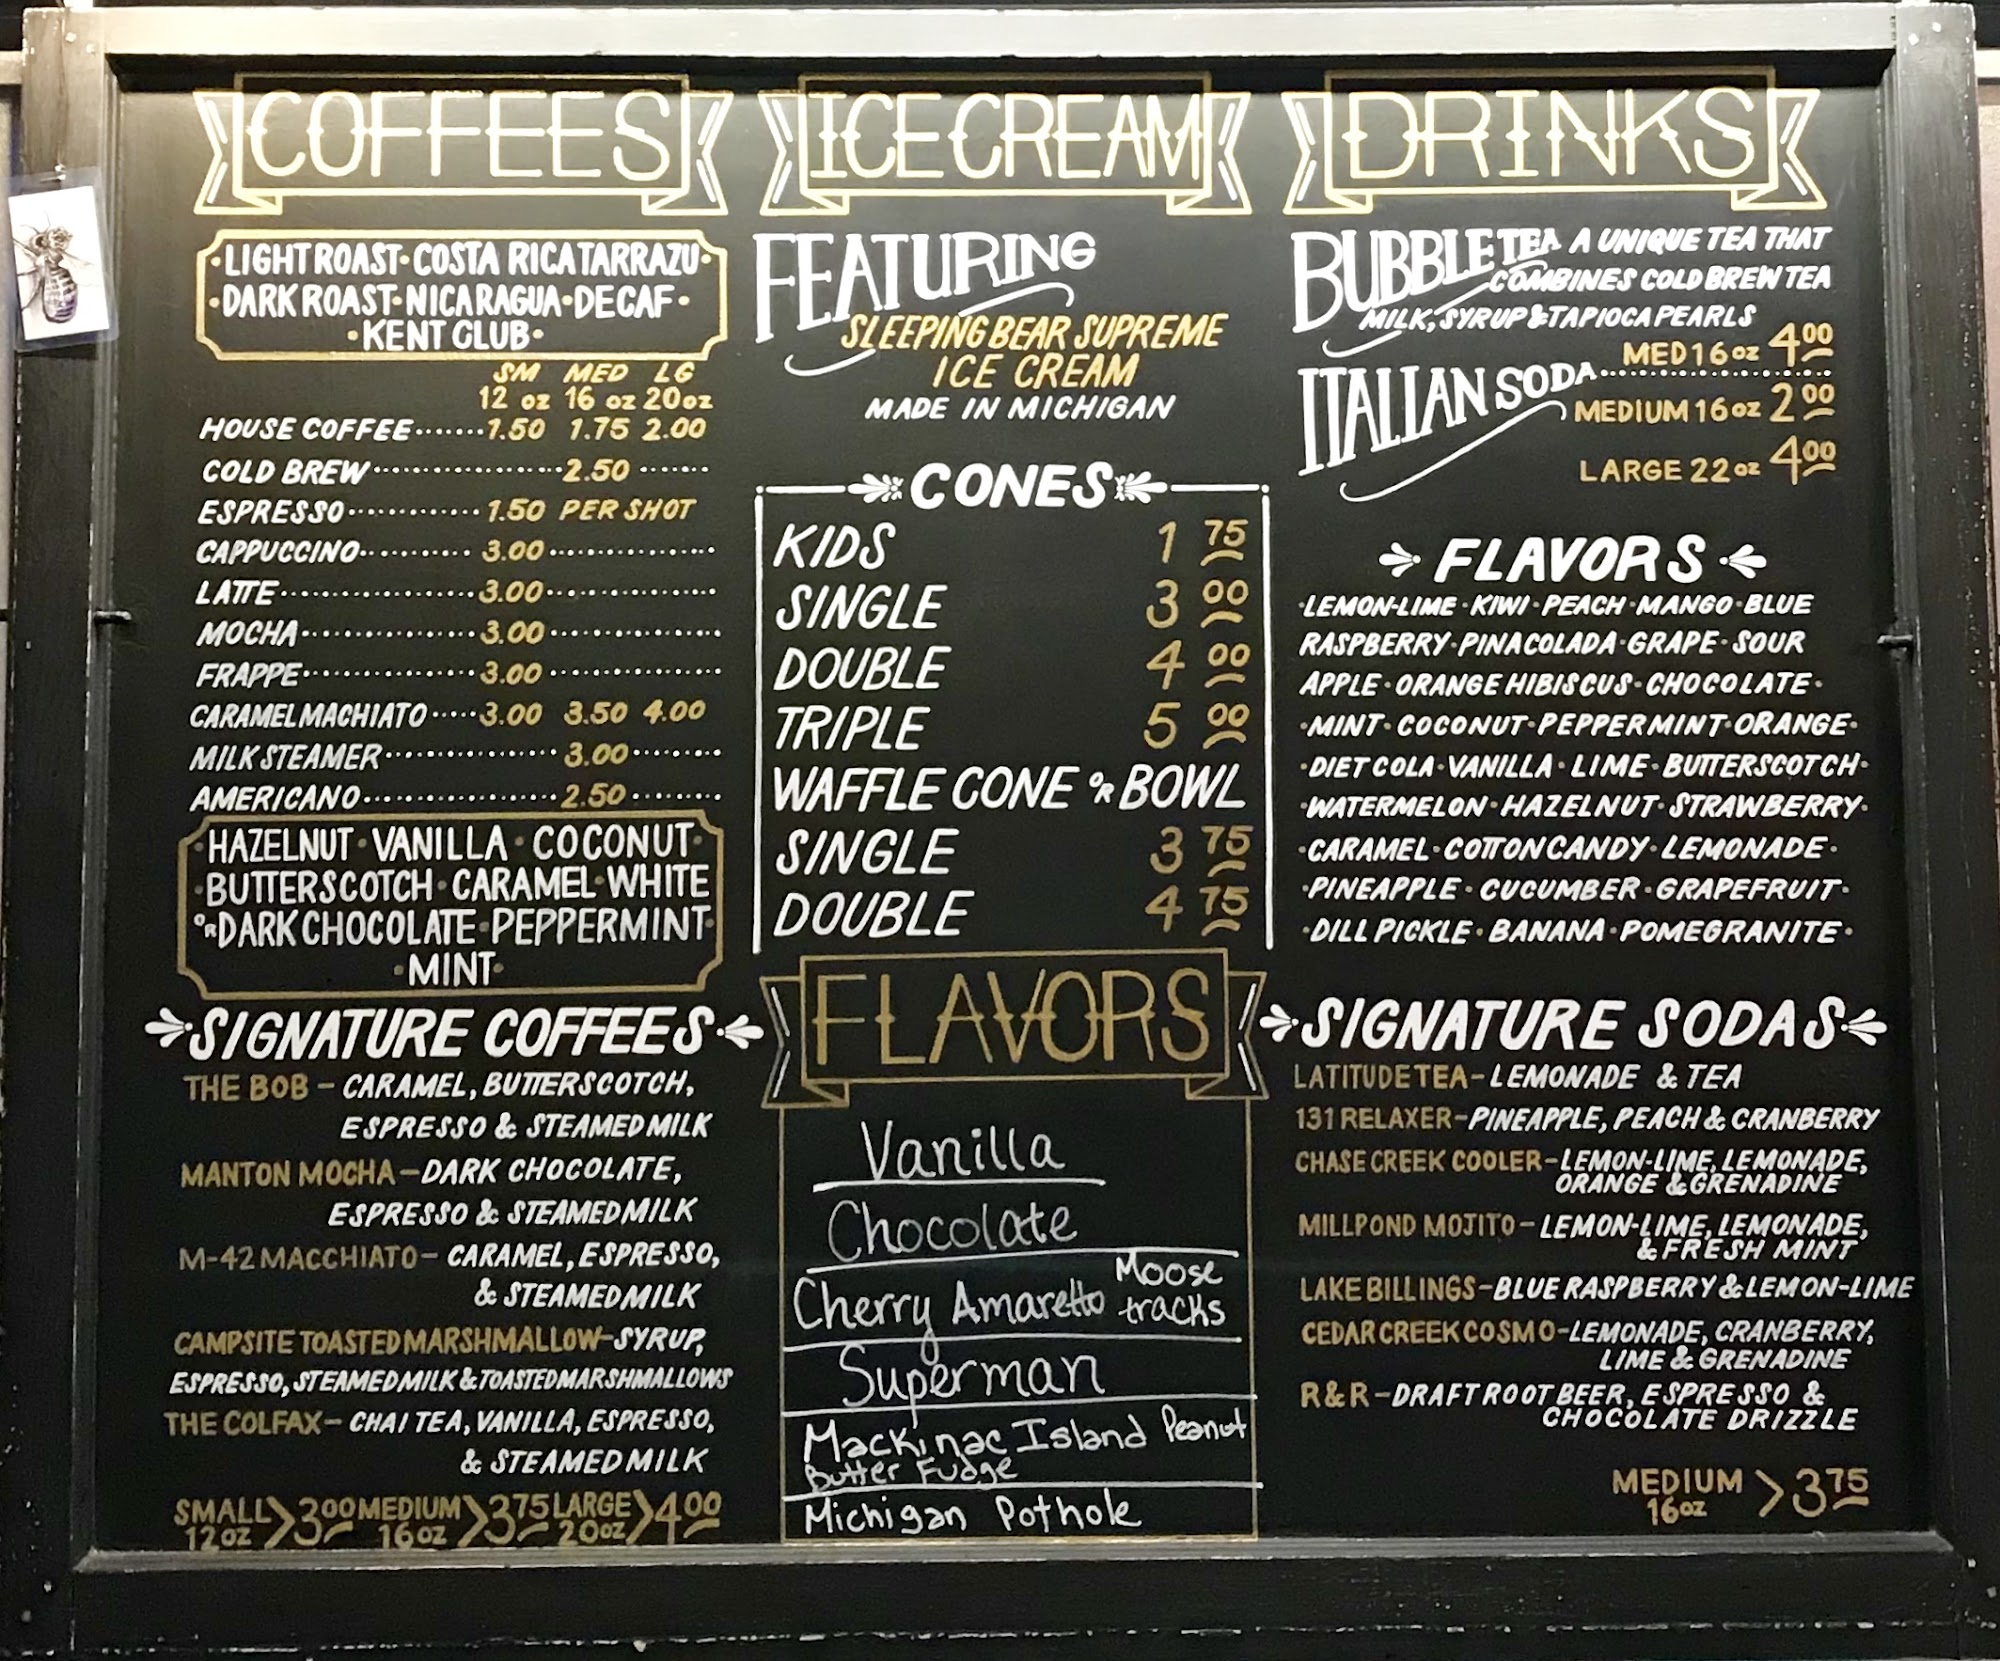 COFFEES
·LIGHT ROAST·COSTA RICA TARRAZU·
·DARK ROAST·NICARAGUA·DECAF·
·KENT CLUB·
SM MED LG
12 oz 16 oz 20oz
HOUSE COFFEE.......1.50 1.75 2.00
COLD BREW...................2.50 ......
ESPRESSO.............1.50 PER SHOT
CAPPUCCINO...........3.00.................
LATTE....................3.00.................
MOCHA..................3.00.................
FRAPPE..................3.00.................
CARAMEL MACHIATO.....3.00 3.50 4.00
MILK STEAMER.................3.00.........
AMERICANO....................2.50.........
HAZELNUT·VANILLA·COCONUT·
·BUTTERSCOTCH·CARAMEL·WHITE
OR DARK CHOCOLATE·PEPPERMINT·
·MINT·
SIGNATURE COFFEES
THE BOB – CARAMEL, BUTTERSCOTCH,
ESPRESSO & STEAMED MILK
MANTON MOCHA – DARK CHOCOLATE,
ESPRESSO & STEAMED MILK
M-42 MACCHIATO – CARAMEL, ESPRESSO,
& STEAMED MILK
CAMPSITE TOASTED MARSHMALLOW – SYRUP,
ESPRESSO, STEAMED MILK & TOASTED MARSHMALLOWS
THE COLFAX – CHAI TEA, VANILLA, ESPRESSO,
& STEAMED MILK
SMALL > 3.00 MEDIUM > 3.75 LARGE > 4.00
12oz 16oz 20oz
ICE CREAM
FEATURING
SLEEPING BEAR SUPREME
ICE CREAM
MADE IN MICHIGAN
CONES
KIDS 1 75
SINGLE 3 00
DOUBLE 4 00
TRIPLE 5 00
WAFFLE CONE OR BOWL
SINGLE 3 75
DOUBLE 4 75
FLAVORS
Vanilla
Chocolate
Cherry Amaretto Moose
tracks
Superman
Mackinac Island Peanut
Butter Fudge
Michigan Pothole
DRINKS
BUBBLE TEA A UNIQUE TEA THAT
COMBINES COLD BREW TEA
MILK, SYRUP & TAPIOCA PEARLS
MED 16 oz 4.00
ITALIAN SODA
MEDIUM 16 oz 2.00
LARGE 22 oz 4.00
FLAVORS
·LEMON-LIME·KIWI·PEACH·MANGO·BLUE
RASPBERRY·PINACOLADA·GRAPE·SOUR
APPLE·ORANGE HIBISCUS·CHOCOLATE·
·MINT·COCONUT·PEPPERMINT·ORANGE·
·DIET COLA·VANILLA·LIME·BUTTERSCOTCH·
·WATERMELON·HAZELNUT·STRAWBERRY·
·CARAMEL·COTTON CANDY·LEMONADE·
·PINEAPPLE·CUCUMBER·GRAPEFRUIT·
·DILL PICKLE·BANANA·POMEGRANITE·
SIGNATURE SODAS
LATITUDE TEA – LEMONADE & TEA
131 RELAXER – PINEAPPLE, PEACH & CRANBERRY
CHASE CREEK COOLER – LEMON-LIME, LEMONADE,
ORANGE & GRENADINE
MILLPOND MOJITO – LEMON-LIME, LEMONADE,
& FRESH MINT
LAKE BILLINGS – BLUE RASPBERRY & LEMON-LIME
CEDAR CREEK COSMO – LEMONADE, CRANBERRY,
LIME & GRENADINE
R & R – DRAFT ROOT BEER, ESPRESSO &
CHOCOLATE DRIZZLE
MEDIUM > 3.75
16oz